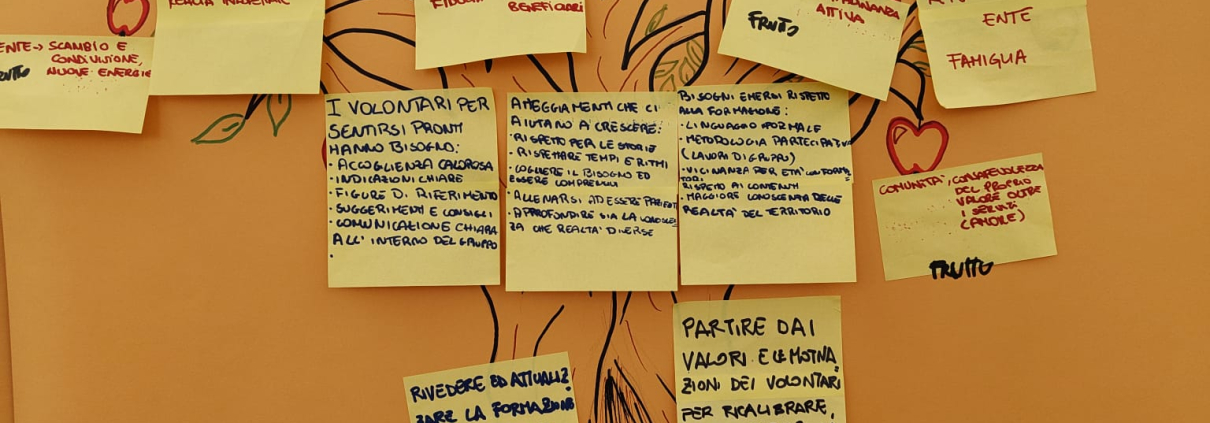 REALTÀ
BENEFICIARI
ATTIVA
FRUTTO
ENTE
FAMIGLIA
ENTE → SCAMBIO E
CONDIVISIONE,
NUOVE ENERGIE
I VOLONTARI PER
SENTIRSI PRONTI
HANNO BISOGNO:
• ACCOGLIENZA CALOROSA
• INDICAZIONI CHIARE
• FIGURE DI RIFERIMENTO
• SUGGERIMENTI E CONSIGLI
• COMUNICAZIONE CHIARA
ALL' INTERNO DEL GRUPPO
ATTEGGIAMENTI CHE CI
AIUTANO A CRESCERE:
• RISPETTO PER LE STORIE
• RISPETTARE TEMPI E RITMI
• COGLIERE IL BISOGNO ED
ESSERE COMPRENSIVI
• ALLENARSI AD ESSERE PAZIENTI
• APPROFONDIRE SIA LA CONOSCEN
ZA CHE REALTA' DIVERSE
BISOGNI EMERSI RISPETTO
ALLA FORMAZIONE:
• LINGUAGGIO
• METODOLOGIA PARTECIPATIVA
(LAVORI DI GRUPPO)
• VICINANZA PER ETA' CON FORMA
TORI
RISPETTO AI CONTENUTI
• MAGGIORE CONOSCENZA DELLE
REALTA' DEL TERRITORIO
COMUNITA', CONSAPEVOLEZZA
DEL PROPRIO
VALORE OLTRE
I SERVIZI
(AMORE)
FRUTTO
RIVEDERE ED ATTUALIZ
ZARE LA FORMAZIONE
PARTIRE DAI
VALORI E LE MOTIVA
ZIONI DEI VOLONTARI
PER RICALIBRARE,